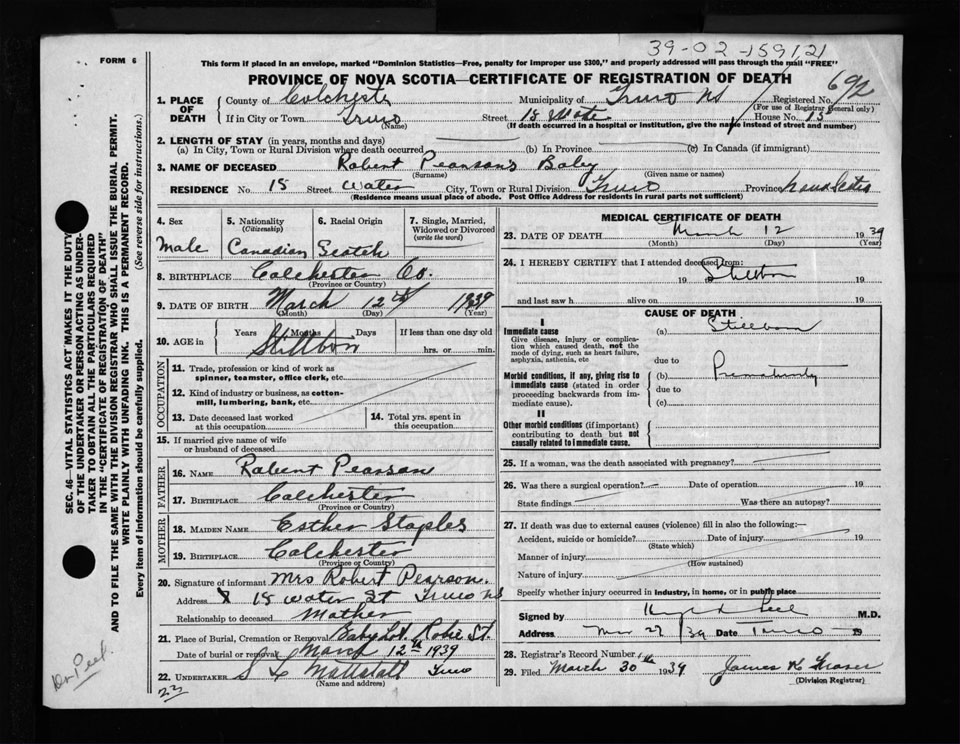 39-02-159121
FORM 6
This form if placed in an envelope, marked "Dominion Statistics—Free, penalty for improper use $300," and properly addressed will pass through the mail "FREE"
PROVINCE OF NOVA SCOTIA—CERTIFICATE OF REGISTRATION OF DEATH
692
1. PLACE OF DEATH
County of Colchester Municipality of Truro NS Registered No.
(For use of Registrar General only)
If in City or Town Truro Street 18 Wate House No. 15
(Name) (If death occurred in a hospital or institution, give the name instead of street and number)
2. LENGTH OF STAY (in years, months and days)
(a) In City, Town or Rural Division where death occurred (b) In Province (c) In Canada (if immigrant)
3. NAME OF DECEASED Robert Pearson's Baby
(Surname) (Given name or names)
RESIDENCE No. 18 Street Water City, Town or Rural Division Truro Province Nova Scotia
(Residence means usual place of abode. Post Office Address for residents in rural parts not sufficient)
4. Sex
Male
5. Nationality
(Citizenship)
Canadian
6. Racial Origin
Scotch
7. Single, Married, Widowed or Divorced
(write the word)
8. BIRTHPLACE Colchester Co.
(Province or Country)
9. DATE OF BIRTH March 12th 1939
(Month) (Day) (Year)
10. AGE in Years Months Days If less than one day old
Stillborn hrs. or min.
OCCUPATION
11. Trade, profession or kind of work as spinner, teamster, office clerk, etc.
12. Kind of industry or business, as cotton-mill, lumbering, bank, etc.
13. Date deceased last worked at this occupation
14. Total yrs. spent in this occupation
15. If married give name of wife or husband of deceased
FATHER
16. NAME Robert Pearson
17. BIRTHPLACE Colchester
(Province or Country)
MOTHER
18. MAIDEN NAME Esther Staples
19. BIRTHPLACE Colchester
(Province or Country)
20. Signature of informant Mrs Robert Pearson.
Address 18 Water St Truro NS
Relationship to deceased Mother
21. Place of Burial, Cremation or Removal Baby Lot. Robie St.
Date of burial or removal March 12th 1939
22. UNDERTAKER Mattatall Truro
(Name and address)
MEDICAL CERTIFICATE OF DEATH
23. DATE OF DEATH March 12 1939
(Month) (Day) (Year)
24. I HEREBY CERTIFY that I attended deceased from:
19 Stillborn 19
and last saw h alive on 19
CAUSE OF DEATH
I
Immediate cause
Give disease, injury or complication which caused death, not the mode of dying, such as heart failure, asphyxia, asthenia, etc
(a) Stillborn
due to
Morbid conditions, if any, giving rise to immediate cause (stated in order proceeding backwards from immediate cause).
(b) Prematurity
due to
(c)
II
Other morbid conditions (if important) contributing to death but not causally related to immediate cause.
25. If a woman, was the death associated with pregnancy?
26. Was there a surgical operation? Date of operation 19
State findings Was there an autopsy?
27. If death was due to external causes (violence) fill in also the following:—
Accident, suicide or homicide? Date of injury 19
(State which)
Manner of injury
(How sustained)
Nature of injury
Specify whether injury occurred in Industry, in home, or in public place
Signed by M.D.
Address Mar 27/39 Date Truro 19
28. Registrar's Record Number
29. Filed March 30th 1939 James K Fraser
(Division Registrar)
SEC. 46—VITAL STATISTICS ACT MAKES IT THE DUTY
OF THE UNDERTAKER OR PERSON ACTING AS UNDERTAKER TO OBTAIN ALL THE PARTICULARS REQUIRED
IN THE "CERTIFICATE OF REGISTRATION OF DEATH"
AND TO FILE THE SAME WITH THE DIVISION REGISTRAR WHO SHALL ISSUE THE BURIAL PERMIT.
WRITE PLAINLY WITH UNFADING INK. THIS IS A PERMANENT RECORD.
Every item of information should be carefully supplied. (See reverse side for instructions.)
Dr Peel.
23